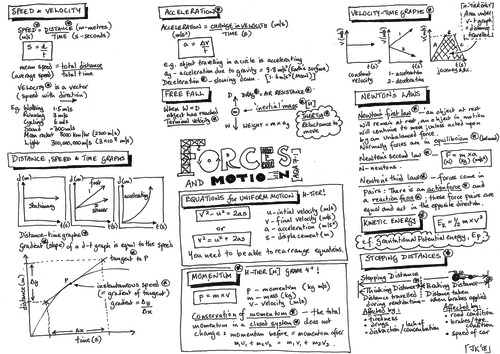 SPEED & VELOCITY
SPEED = DISTANCE (m - metres)
(m/s) TIME (s - seconds)
S = d/t
mean speed = total distance
(average speed) total time
VELOCITY is a vector
(speed with direction)
Eg. Walking 1.5 m/s
Running 3 m/s
Cycling 6 m/s
Sound 300 m/s
Light 300,000,000 m/s (3 x 10⁸ m/s)
DISTANCE, SPEED & TIME GRAPHS
d(m) d(m) d(m)
stationary
fast
slower
accelerating
t(s) t(s) t(s)
Distance-time graphs
Gradient (slope) of a d-t graph is equal to the speed
tangent to P
P
instantaneous speed
(= gradient of tangent)
gradient = Δy
Δx
distance (m)
Δy
Δx
time (s)
ACCELERATION
ACCELERATION = CHANGE IN VELOCITY (m/s)
(m/s²) TIME (s)
a = Δv/t
e.g. object travelling in a circle is accelerating
ag - acceleration due to gravity = 9.8 m/s² (Earth's surface)
Deceleration - slowing down
FREE FALL
When W = D
object has reached
Terminal Velocity
D DRAG, AIR RESISTANCE
inertial mass [H]
INERTIA
Reluctance to
move
W WEIGHT = m x ag
FORCES
AND MOTION
EQUATIONS FOR UNIFORM MOTION H-TIER!
V² - U² = 2as
or
v² - u² = 2as
u - initial velocity (m/s)
v - final velocity (m/s)
a - acceleration (m/s²)
s - displacement (m)
You need to be able to rearrange equations.
MOMENTUM H-TIER [H] GRADE 9!
p = m x v
p - momentum (kg m/s)
m - mass (kg)
v - velocity (m/s)
Conservation of momentum - the total
momentum in a closed system does not
change ∴ momentum before = momentum after
m₁v₁ + m₂v₂ = m₁v₁ + m₂v₂
VELOCITY-TIME GRAPHS
[H-TIER ONLY]
Area under
v-t graph
= distance
travelled
t(s) t(s) t(s)
constant
velocity
1 - acceleration
2 - deceleration
NEWTON'S LAWS
Newton's first law - an object at rest
will remain at rest, an object in motion
will continue to move unless acted upon
by an unbalanced force.
Normally forces are in equilibrium
Newton's second law
N - newtons
F = m x a
(N) (kg) (m/s²)
Newton's third law - forces come in
Pairs: There is an action force and
a reaction force; these force pairs are
equal and act in the opposite direction.
KINETIC ENERGY
Eₖ = ½ m x v²
c.f. gravitational Potential energy, Ep
STOPPING DISTANCES
Stopping Distance
= Thinking Distance + Braking Distance
Distance travelled
during reaction time
Affected by:
• tiredness
• drugs
• distraction/concentration
Distance taken
when brakes applied
Affected by:
• road condition
• brakes/tyre
condition
• speed of car
[JK'18]